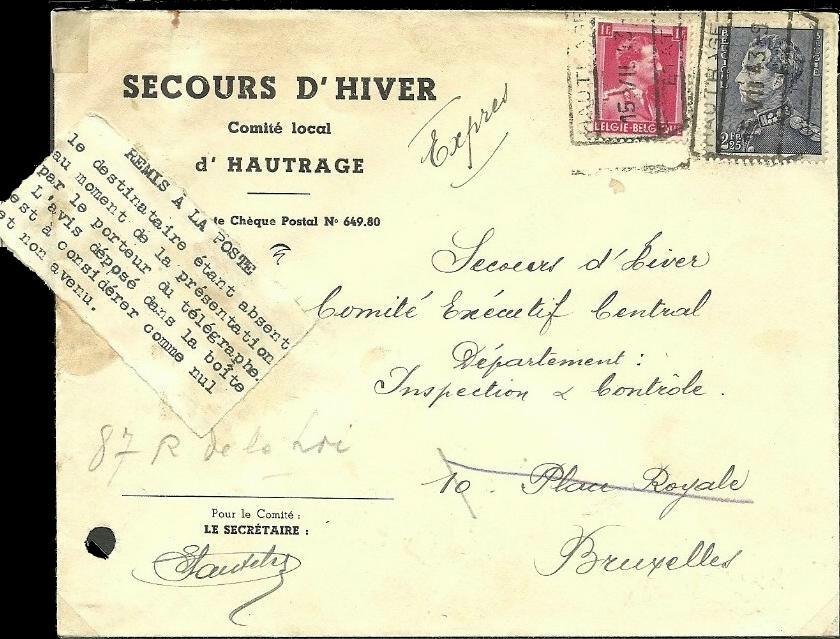 SECOURS D'HIVER
Comité local
d' HAUTRAGE
te Chèque Postal N° 649.80
Expres
1F 1F
BELGIE-BELGIQUE
HAUTRAGE
15 VII 43
BELGIQUE BELGIË
2FR
25
HAUTRAGE
VII 43
REMIS A LA POSTE
le destinataire étant absent
au moment de la présentation
par le porteur du télégraphe.
L'avis déposé dans la boîte
est à considérer comme nul
et non avenu.
Secours d'Hiver
Comité Exécutif Central
Département :
Inspection & Contrôle.
87 R de la Loi
10. Place Royale
Bruxelles
Pour le Comité :
LE SECRÉTAIRE :